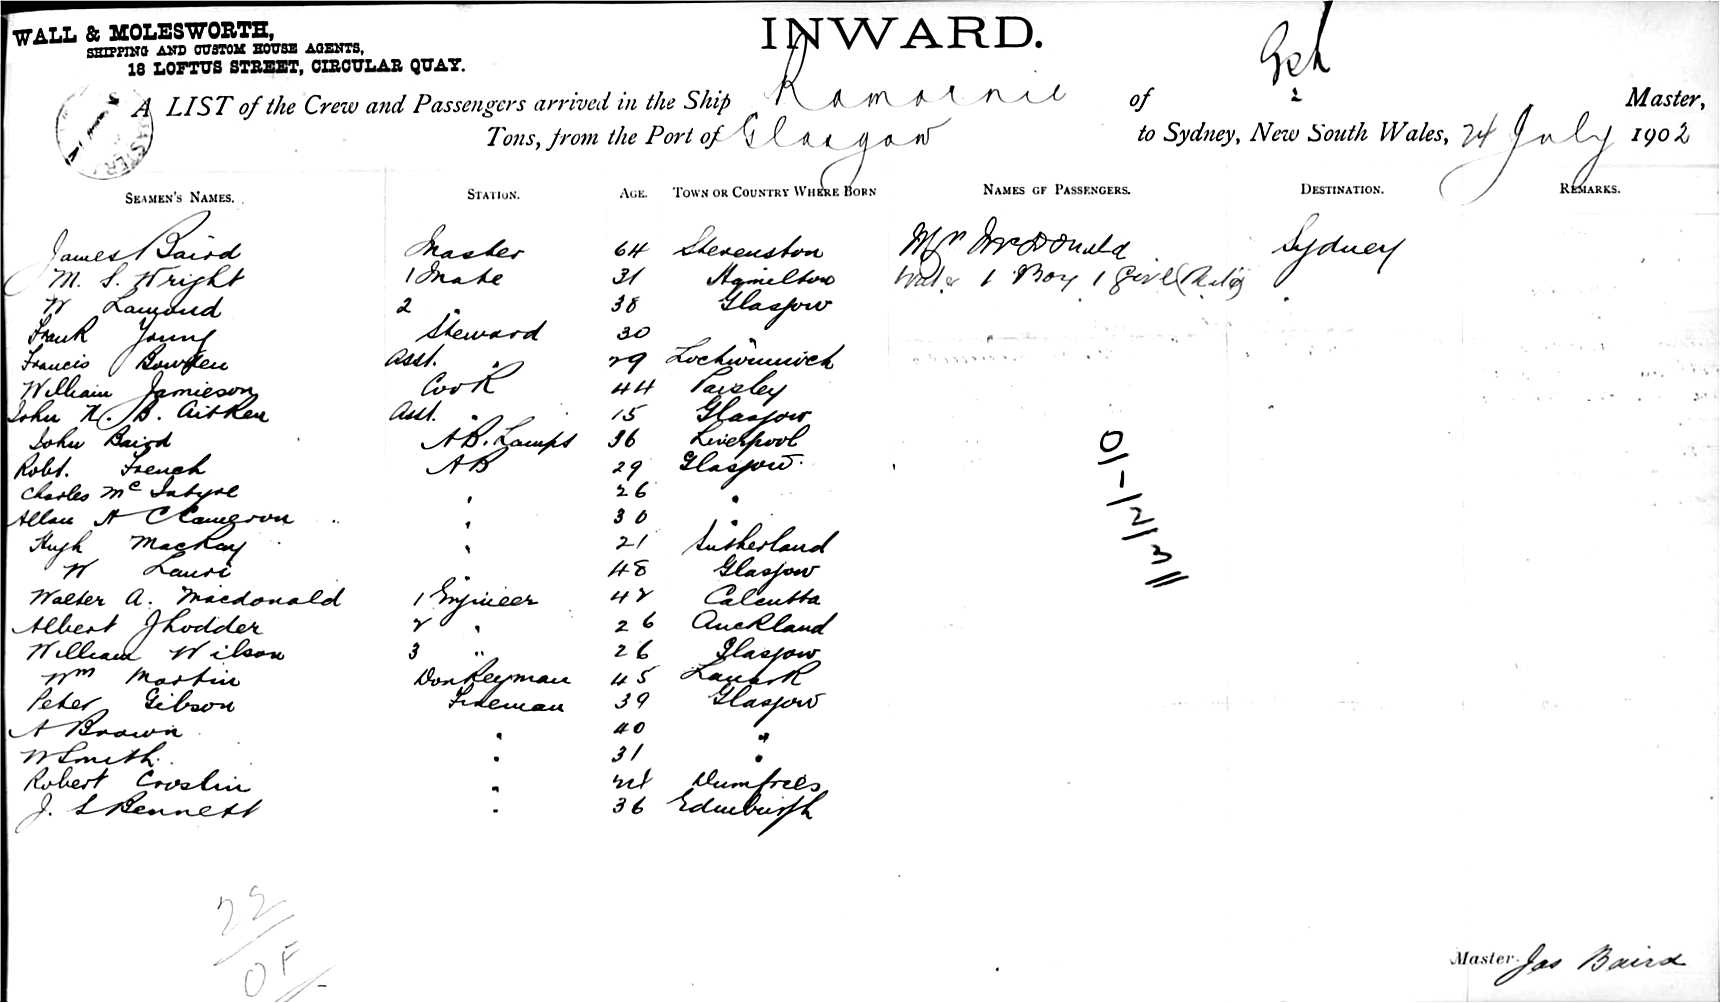 WALL & MOLESWORTH,
SHIPPING AND CUSTOM HOUSE AGENTS,
18 LOFTUS STREET, CIRCULAR QUAY.
INWARD.
A LIST of the Crew and Passengers arrived in the Ship Ramornie of Master,
Tons, from the Port of Glasgow to Sydney, New South Wales, 24 July 1902
SEAMEN'S NAMES. STATION. AGE. TOWN OR COUNTRY WHERE BORN NAMES OF PASSENGERS. DESTINATION. REMARKS.
James Baird Master 64 Stevenston Mrs McDonald Sydney
M. S. Wright 1 Mate 31 Hamilton 1 Boy 1 girl
W Lamond 2 " 38 Glasgow "
Frank Young Steward 30 "
Francis Bowden Asst. " 29 Lochwinnoch
William Jamieson Cook 44 Paisley
John N. B. Aitken Asst. " 15 Glasgow
John Baird AB. Lamps 36 Liverpool
Robt. French AB 29 Glasgow
Charles McIntyre " 26 "
Allan A Cameron " 30 "
Hugh MacKay " 21 Sutherland
W Lauri " 48 Glasgow
Walter A. Macdonald 1 Engineer 42 Calcutta
Albert J Hodder 2 " 26 Auckland
William Wilson 3 " 26 Glasgow
Wm Martin Donkeyman 45 Lanark
Peter Gibson Fireman 39 Glasgow
A Brown " 40 "
W Smith " 31 "
Robert Croslin " 24 Dumfries
J. S Bennett " 36 Edinburgh
22
Master Jas Baird